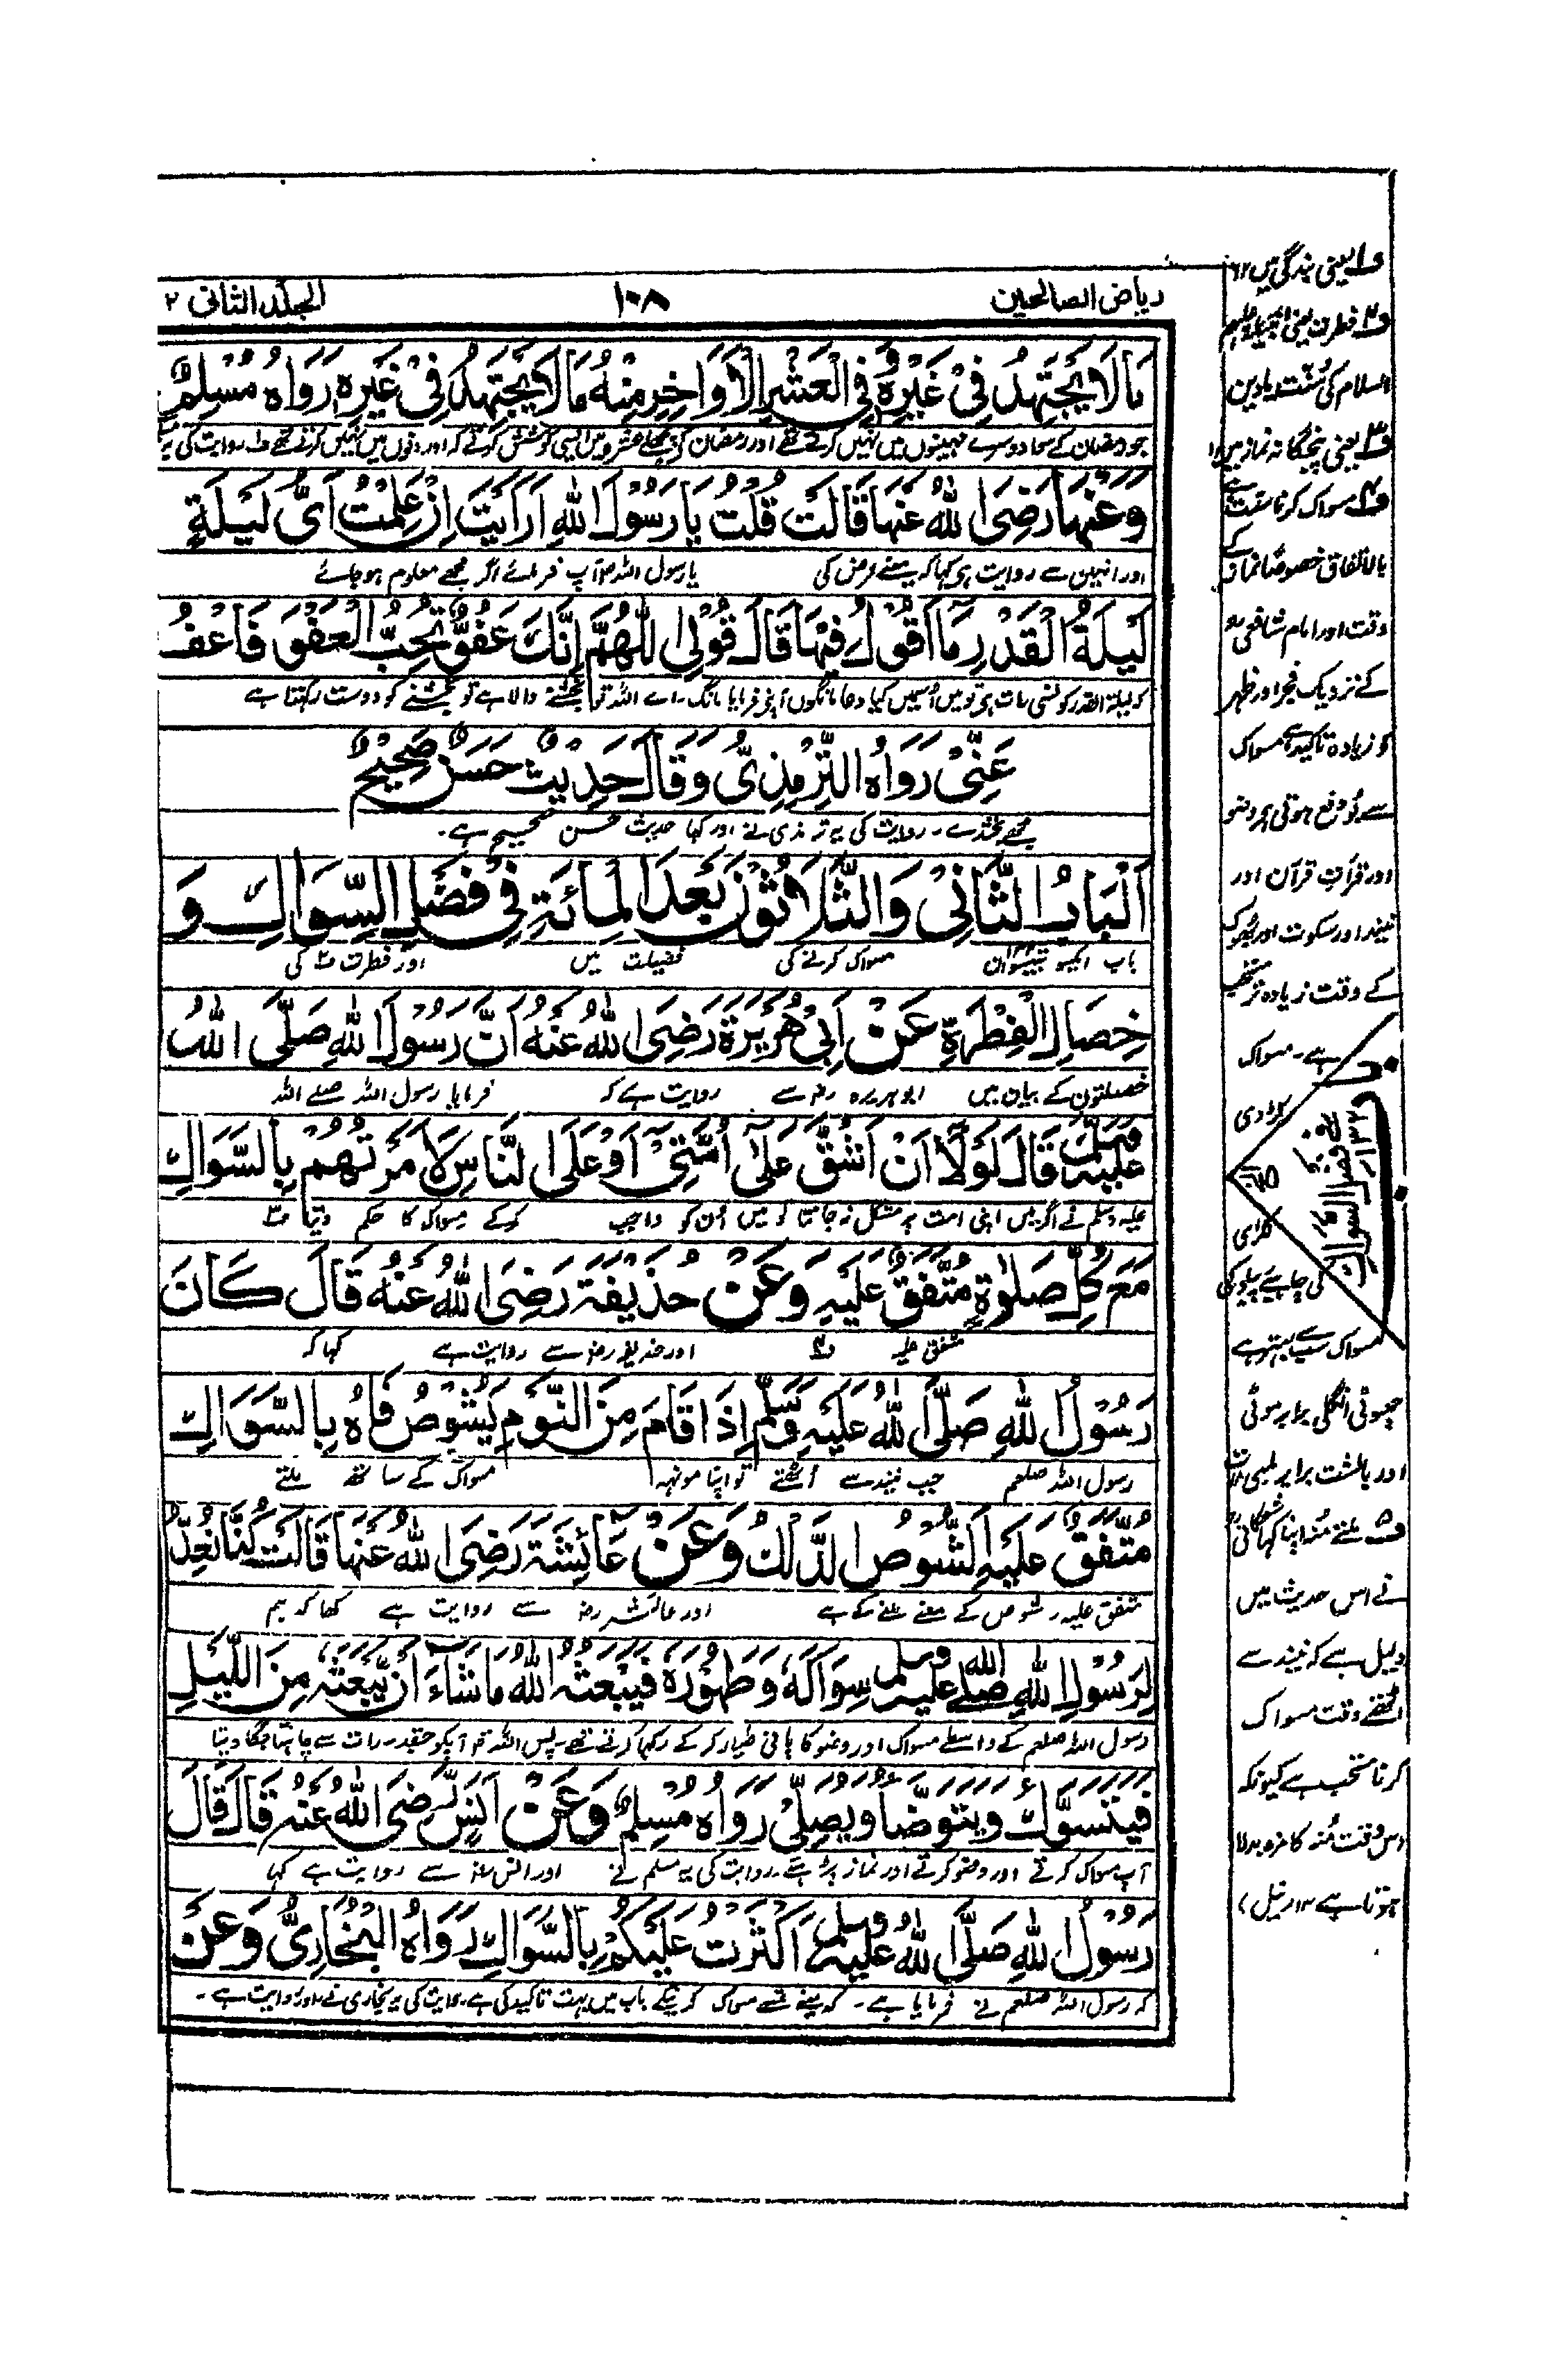 رياض الصالحين
١٠٨
المجلد الثانی ٢
مَالَا يَجْتَهِدُ فِيْ غَيْرِهٖ وَفِي الْعَشْرِ الْاَوَاخِرِ مِنْهُ مَالَا يَجْتَهِدُ فِيْ غَيْرِهٖ رَوَاهُ مُسْلِمٌ
جو رمضان کے سوا دوسرے مہینوں میں نہیں کرتے تھے اور رمضان کے پچھلے عشرہ میں ایسی کوشش کرتے کہ اور دنوں میں نہیں کرتے تھے ف۱ روایت کی یہ
وَعَنْهَا رَضِيَ اللّٰهُ عَنْهَا قَالَتْ قُلْتُ يَا رَسُوْلَ اللّٰهِ اَرَاَيْتَ اِنْ عَلِمْتُ اَيُّ لَيْلَةٍ
اور انہیں سے روایت ہی کہا کہ مینے عرض کی یا رسول اللہ آپ فرمائے اگر مجھے معلوم ہو جائے
لَيْلَةُ الْقَدْرِ مَا اَقُوْلُ فِيْهَا قَالَ قُوْلِي اللّٰهُمَّ اِنَّكَ عَفُوٌّ تُحِبُّ الْعَفْوَ فَاعْفُ
کہ لیلۃ القدر کونسی رات ہی تو میں اُسمیں کیا دعا مانگوں آپنی فرمایا مانگ۔ اے اللہ تو بخشنے والا ہے تو بخشنے کو دوست رکھتا ہے
عَنِّيْ رَوَاهُ التِّرْمِذِيُّ وَقَالَ حَدِيْثٌ حَسَنٌ صَحِيْحٌ
مجھے بخشدے۔ روایت کی یہ ترمذی نے اور کہا حدیث حسن صحیح ہے۔
اَلْبَابُ الثَّانِيْ وَالثَّلَاثُوْنَ بَعْدَ الْمِائَةِ فِيْ فَضْلِ السِّوَاكِ وَ
باب ایکسو بتیسواں مسواک کرنے کی فضیلت میں اور فطرت ف۲ کی
خِصَالِ الْفِطْرَةِ عَنْ اَبِيْ هُرَيْرَةَ رَضِيَ اللّٰهُ عَنْهُ اَنَّ رَسُوْلَ اللّٰهِ صَلَّى اللّٰهُ
خصلتوں کے بیان میں ابوہریرہ رضہ سے روایت ہے کہ فرمایا رسول اللہ صلے اللہ
عَلَيْهِ وَسَلَّمَ قَالَ لَوْلَا اَنْ اَشُقَّ عَلٰى اُمَّتِيْ اَوْ عَلَى النَّاسِ لَاَمَرْتُهُمْ بِالسِّوَاكِ
علیہ وسلم نے اگر میں اپنی امت پر مشکل نہ جانتا تو میں اُن کو واجب کرکے مسواک کا حکم دیتا ف۳
مَعَ كُلِّ صَلٰوةٍ مُتَّفَقٌ عَلَيْهِ وَعَنْ حُذَيْفَةَ رَضِيَ اللّٰهُ عَنْهُ قَالَ كَانَ
متفق علیہ ف۴ اور حذیفہ رضہ سے روایت ہے کہا کہ
رَسُوْلُ اللّٰهِ صَلَّى اللّٰهُ عَلَيْهِ وَسَلَّمَ اِذَا قَامَ مِنَ النَّوْمِ يَشُوْصُ فَاهُ بِالسِّوَاكِ
رسول اللہ صلعم جب نیند سے اُٹھتے تو اپنا مونہہ مسواک کے ساتھ ملتے
مُتَّفَقٌ عَلَيْهِ الشَّوْصُ الدَّلْكُ وَعَنْ عَائِشَةَ رَضِيَ اللّٰهُ عَنْهَا قَالَتْ كُنَّا نُعِدُّ
متفق علیہ۔ شوص کے معنے ملنے کے ہے اور عائشہ رضہ سے روایت ہے کہا کہ ہم
لِرَسُوْلِ اللّٰهِ صَلَّى اللّٰهُ عَلَيْهِ وَسَلَّمَ سِوَاكَهٗ وَطَهُوْرَهٗ فَيَبْعَثُهُ اللّٰهُ مَا شَاءَ اَنْ يَّبْعَثَهٗ مِنَ اللَّيْلِ
رسول اللہ صلعم کے واسطے مسواک اور وضو کا پانی طیار کر کے رکھا کرتے تھے۔ پس اللہ تم آپکو جقدر رات سے چاہتا جگا دیتا
فَيَتَسَوَّكُ وَيَتَوَضَّأُ وَيُصَلِّيْ رَوَاهُ مُسْلِمٌ وَعَنْ اَنَسٍ رَّضِيَ اللّٰهُ عَنْهُ قَالَ قَالَ
آپ مسواک کرتے اور وضو کرتے اور نماز پڑہتے۔ روایت کی یہ مسلم نے اور انس رضہ سے روایت ہے کہا
رَسُوْلُ اللّٰهِ صَلَّى اللّٰهُ عَلَيْهِ وَسَلَّمَ اَكْثَرْتُ عَلَيْكُمْ بِالسِّوَاكِ رَوَاهُ الْبُخَارِيُّ وَعَنْ
کہ رسول اللہ صلعم نے فرمایا ہے۔ کہ مینے تمسے مسواک کرنیکے باب میں بہت تاکید کی ہے۔ روایت کی یہ بخاری نے۔ اور روایت ہے۔
ف۱ یعنی بندگی میں ۱۲
ف۲ فطرت یعنی انبیا علیہم
السلام کی سُنّت یا دین
ف۳ یعنی پنجگانہ نماز میں ۱۲
ف۴ مسواک کرنا سنت ہے
بالاتفاق خصوصاً نماز کے
وقت اور امام شافعی رہ
کے نزدیک فجر اور ظہر
کو زیادہ تاکید ہے مسواک
سے جو رفع ہوتی ہر وضو
اور قرآتِ قرآن اور
نیند اور سکوت اور بھوک
کے وقت زیادہ تر مستحب
ہے۔ مسواک
کڑوی
لکڑی
کی چاہیے پیلو کی
مسواک سب سے بہتر ہے
چھوٹی انگلی برابر موٹی
اور بالشت برابر لمبی
ف۵ ملتے مُنہ اپنا کہا شوکانی رہ
نے اس حدیث میں
دلیل ہے کہ نیند سے
اُٹھتے وقت مسواک
کرنا مستحب ہے کیونکہ
اس وقت مُنہ کا مزہ بدلا
ہوتا ہے ۱۲ (نیل)
فضل السواک